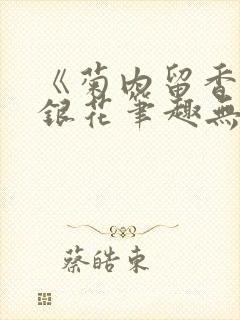 《菊内留香
銀花筆趣無
蔡皓東